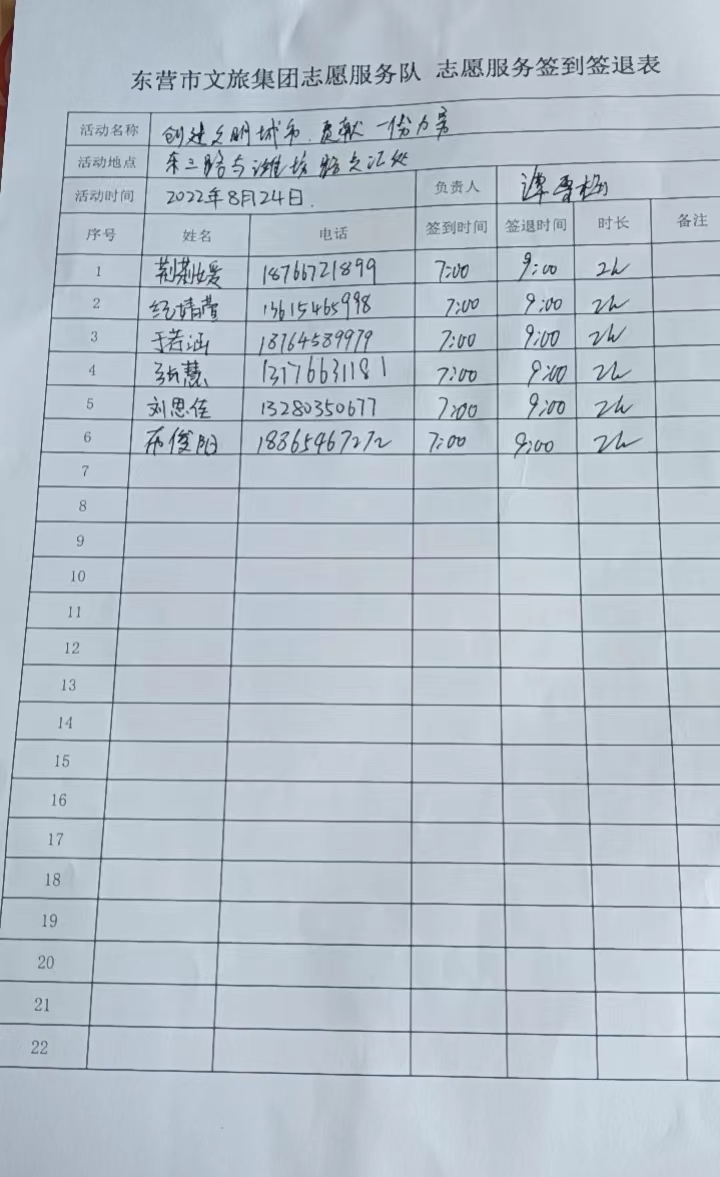 东营市文旅集团志愿服务队 志愿服务签到签退表
活动名称 创建文明城市、贡献一份力量
活动地点 东三路与潍坊路交汇处
活动时间 2022年8月24日. 负责人 谭
序号 姓名 电话 签到时间 签退时间 时长 备注
1 荆荆媛 18766721899 7:00 9:00 2h
2 纪靖萱 13615465998 7:00 9:00 2h
3 于若涵 18764589979 7:00 9:00 2h
4 慧 13176631181 7:00 9:00 2h
5 刘思佳 13280350677 7:00 9:00 2h
6 俊阳 18365467272 7:00 9:00 2h
7
8
9
10
11
12
13
14
15
16
17
18
19
20
21
22